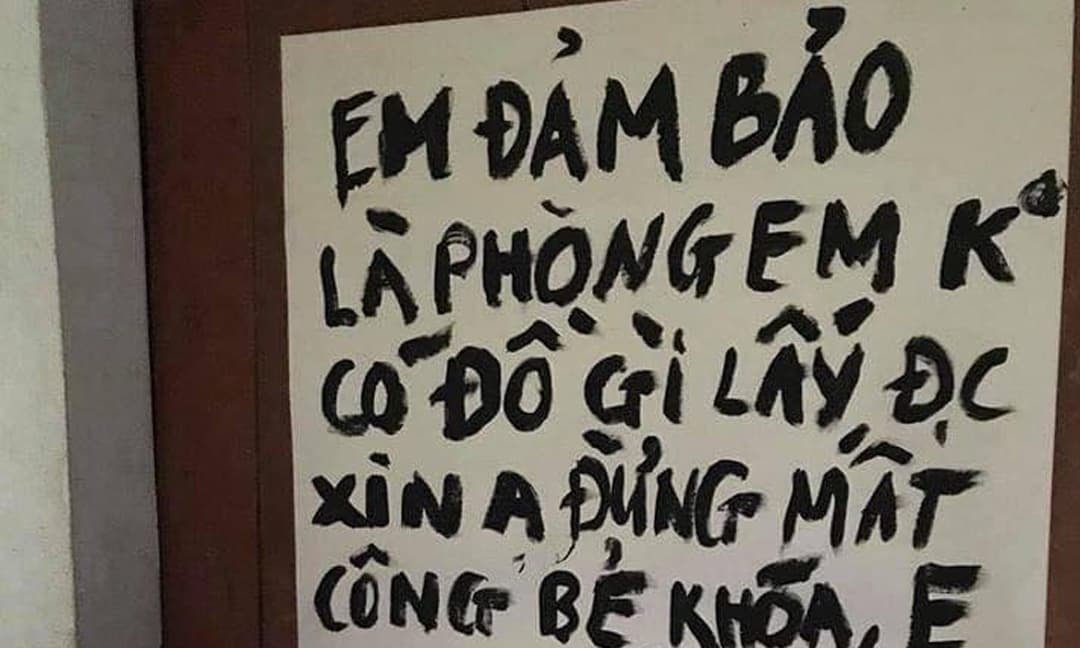 EM ĐẢM BẢO
LÀ PHÒNG EM K
CÓ ĐỒ GÌ LẤY ĐC
XIN A ĐỪNG MẤT
CÔNG BẺ KHÓA, E